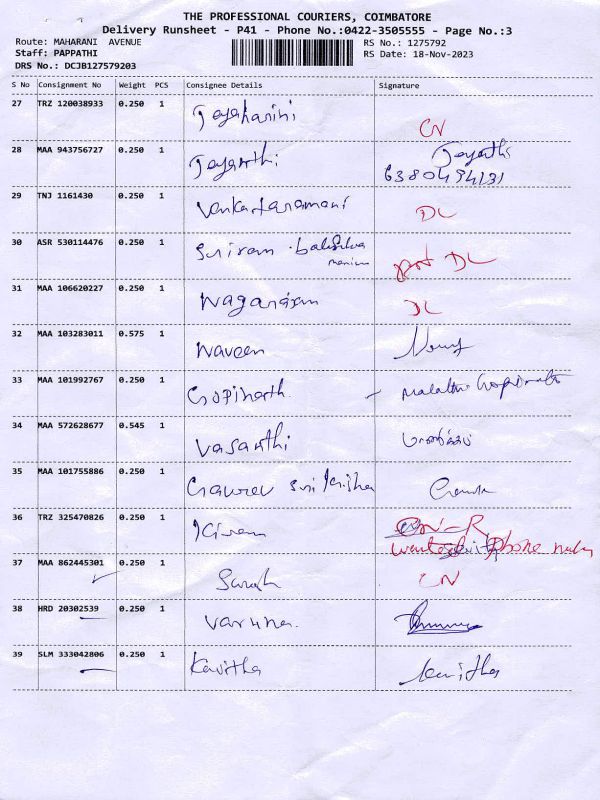 THE PROFESSIONAL COURIERS, COIMBATORE
Delivery Runsheet - P41 - Phone No.:0422-3505555 - Page No.:3
Route: MAHARANI AVENUE RS No.: 1275792
Staff: PAPPATHI RS Date: 18-Nov-2023
DRS No.: DCJB127579203
S No Consignment No Weight PCS Consignee Details Signature
27 TRZ 120038933 0.250 1 Jayaharini CN
28 MAA 943756727 0.250 1 Jayanthi Jayanthi
6380494131
29 TNJ 1161430 0.250 1 Venkataramani DL
30 ASR 530114476 0.250 1 Sriram . DL
31 MAA 106620227 0.250 1 Nagarajan DL
32 MAA 103283011 0.575 1 Naveen
33 MAA 101992767 0.250 1 Gopinath. Malathi Gopinath
34 MAA 572628677 0.545 1 Vasanthi
35 MAA 101755886 0.250 1 Gaurav Sri Krisha
36 TRZ 325470826 0.250 1 Kiran CN-R
Phone
37 MAA 862445301 0.250 1 Sarah CN
38 HRD 20302539 0.250 1 Varuna.
39 SLM 333042806 0.250 1 Kavitha Kavitha